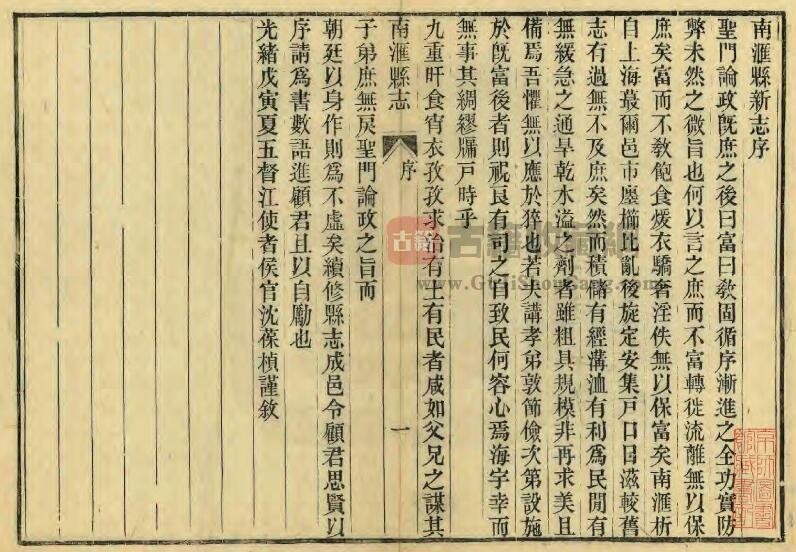 南滙縣新志序
聖門論政旣庶之後曰富曰敎固循序漸進之全功實防
弊未然之微旨也何以言之庶而不富轉徙流離無以保
庶矣富而不敎飽食煖衣驕奢淫佚無以保富矣南滙析
自上海蕞爾邑市廛櫛比亂後旋定安集戸口日滋較舊
志有過無不及庶矣然而積儲有經溝洫有利爲民閒有
無緩急之通旱乾水溢之劑者雖粗具規模非再求美且
備焉吾懼無以應於猝也若夫講孝弟敦節儉次第設施
於旣富後者則視良有司之自致民何容心焉海宇幸而
無事其綢繆牖戸時乎
九重旰食宵衣孜孜求治有土有民者咸如父兄之謀其
南滙縣志 序 一
子弟庶無戾聖門論政之旨而
朝廷以身作則爲不虛矣續修縣志成邑令顧君思賢以
序請爲書數語進顧君且以自勵也
光緖戊寅夏五督江使者侯官沈葆楨謹敘
古籍
www.GujiShouCang.com